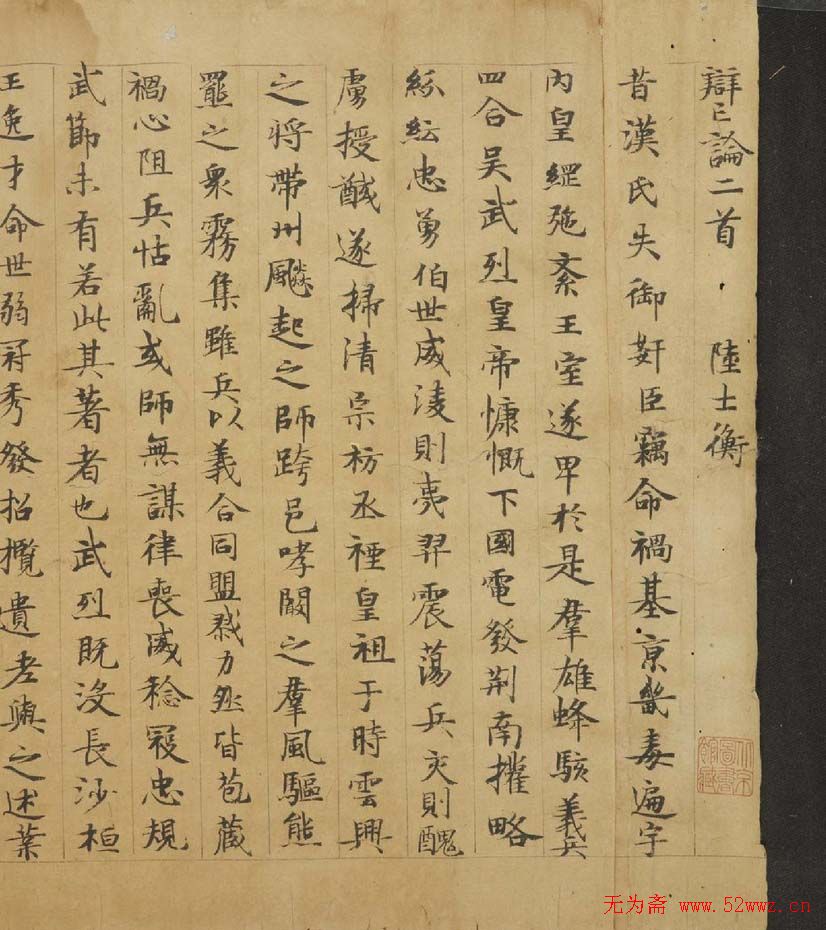 辯亡論二首 陸士衡
昔漢氏失御奸臣竊命禍基京畿毒遍宇
内皇綱弛紊王室遂卑於是羣雄蜂駭義兵
四合吴武烈皇帝慷慨下國電發荆南擢略
紛紜忠勇伯世威淩則夷羿震蕩兵交則醜
虜授馘遂掃清宗枋丞禋皇祖于時雲興
之將帶州飈起之師跨邑哮闞之羣風驅熊
羆之衆霧集雖兵以義合同盟戮力然皆苞藏
禍心阻兵怙亂或師無謀律喪威稔寇忠規
武節未有若此其著者也武烈既没長沙桓
王逸才命世弱冠秀發招攬遺老與之述業
无为斋 www.52wwz.cn